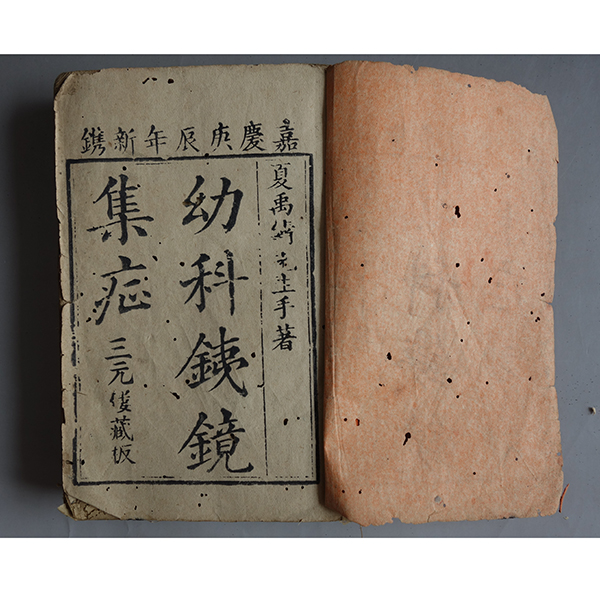 嘉慶庚辰年新鐫
夏禹鑄先生手著
幼科鉄鏡
集症
三元後藏板